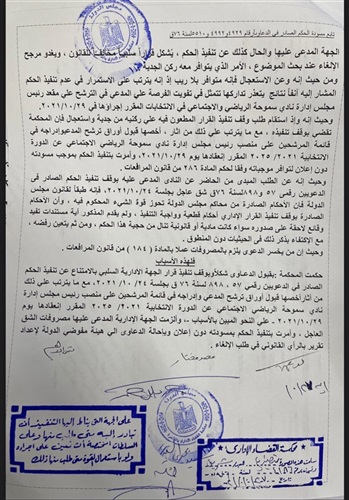 تابع مسودة الحكم الصادر في الدعاوى
الجهة المدعى عليها والحال كذلك عن تنفيذ الحكم ، يشكل قراراً سلبياً مخالفاً للقانون ، ويغدو مرجح
الإلغاء عند بحث الموضوع ، الأمر الذي يتوافر معه ركن الجدية .
ومن حيث إنه عن الاستعجال فإنه متوافر بلا ريب إذ إنه يترتب على الاستمرار في عدم تنفيذ الحكم
المشار إليه آنفاً نتائج يتعذر تداركها تتمثل في تفويت الفرصة على المدعي في الترشح على مقعد رئيس
مجلس إدارة نادي سموحة الرياضي والاجتماعي في الانتخابات المقرر إجراؤها في ٢٠٢١/١٠/٢٩ .
ومن حيث إنه وإذ استقام طلب وقف تنفيذ القرار المطعون فيه على ركنيه من جدية واستعجال فإن المحكمة
تقضي بوقف تنفيذه ، مع ما يترتب على ذلك من آثار ، أخصها قبول أوراق ترشح المدعي وإدراجه في
قائمة المرشحين على منصب رئيس مجلس إدارة نادي سموحة الرياضي والاجتماعي عن الدورة
الانتخابية ٢٠٢١/ ٢٠٢٥ المقرر انعقادها يوم ٢٠٢١/١٠/٢٩ ، وأمرت بتنفيذ الحكم بموجب مسودته
دون إعلان لتوافر موجباته وفقاً لحكم المادة ٢٨٦ من قانون المرافعات .
ومن حيث إنه عن الطلب المبدى من الحاضر عن النادي المدعى عليه بوقف تنفيذ الحكم الصادر في
الدعويين رقمي ٥٧ و٨٩٨ لسنة ٧٦ ق شق عاجل بجلسة ٢٠٢١/١٠/٢٤ ، فإنه طبقاً لقانون مجلس
الدولة فإن الأحكام الصادرة من محاكم مجلس الدولة تحوز قوة الشيء المحكوم فيه ، وأن الأحكام
الصادرة بوقف تنفيذ القرار الإداري أحكام قطعية وواجبة التنفيذ ، ولم يقدم المذكور أية مستندات تفيد
وقائع لاحقة على صدوره سواء كانت مادية أو قانونية تنال من حجية هذا الحكم ، ومن ثم يتعين رفضه ،
مع الاكتفاء بذكر ذلك في الحيثيات دون المنطوق .
وحيث إن من يخسر الدعوى يلزم بالمصروفات عملاً بالمادة ( ١٨٤ ) من قانون المرافعات .
فلهذه الأسباب
حكمت المحكمة :بقبول الدعاوى شكلاً وبوقف تنفيذ قرار الجهة الإدارية السلبي بالامتناع عن تنفيذ الحكم
الصادر في الدعويين رقمي ٥٧ ، ٨٩٨ لسنة ٧٦ ق بجلسة ٢٠٢١/١٠/٢٤ ، مع ما يترتب على ذلك
من آثار أخصها قبول أوراق ترشح المدعي وإدراجه في قائمة المرشحين على منصب رئيس مجلس إدارة
نادي سموحة الرياضي والاجتماعي عن الدورة الانتخابية ٢٠٢١/ ٢٠٢٥ المقرر انعقادها يوم
٢٠٢١/١٠/٢٩ ، على النحو المبين بالأسباب ، وألزمت الجهة الإدارية المدعى عليها مصروفات الشق
العاجل ، وأمرت بتنفيذ الحكم بمسودته دون إعلان وبإحالة الدعاوى إلى هيئة مفوضي الدولة لإعداد
تقرير بالرأي القانوني في طلب الإلغاء .
على الجهة التي يناط إليها التنفيذ أن
تبادر إليه متى طلب منها وعلى
السلطات المختصة أن تعين على إجرائه
ولو باستعمال القوة متى طلب منها ذلك
محكمة القضاء الإداري